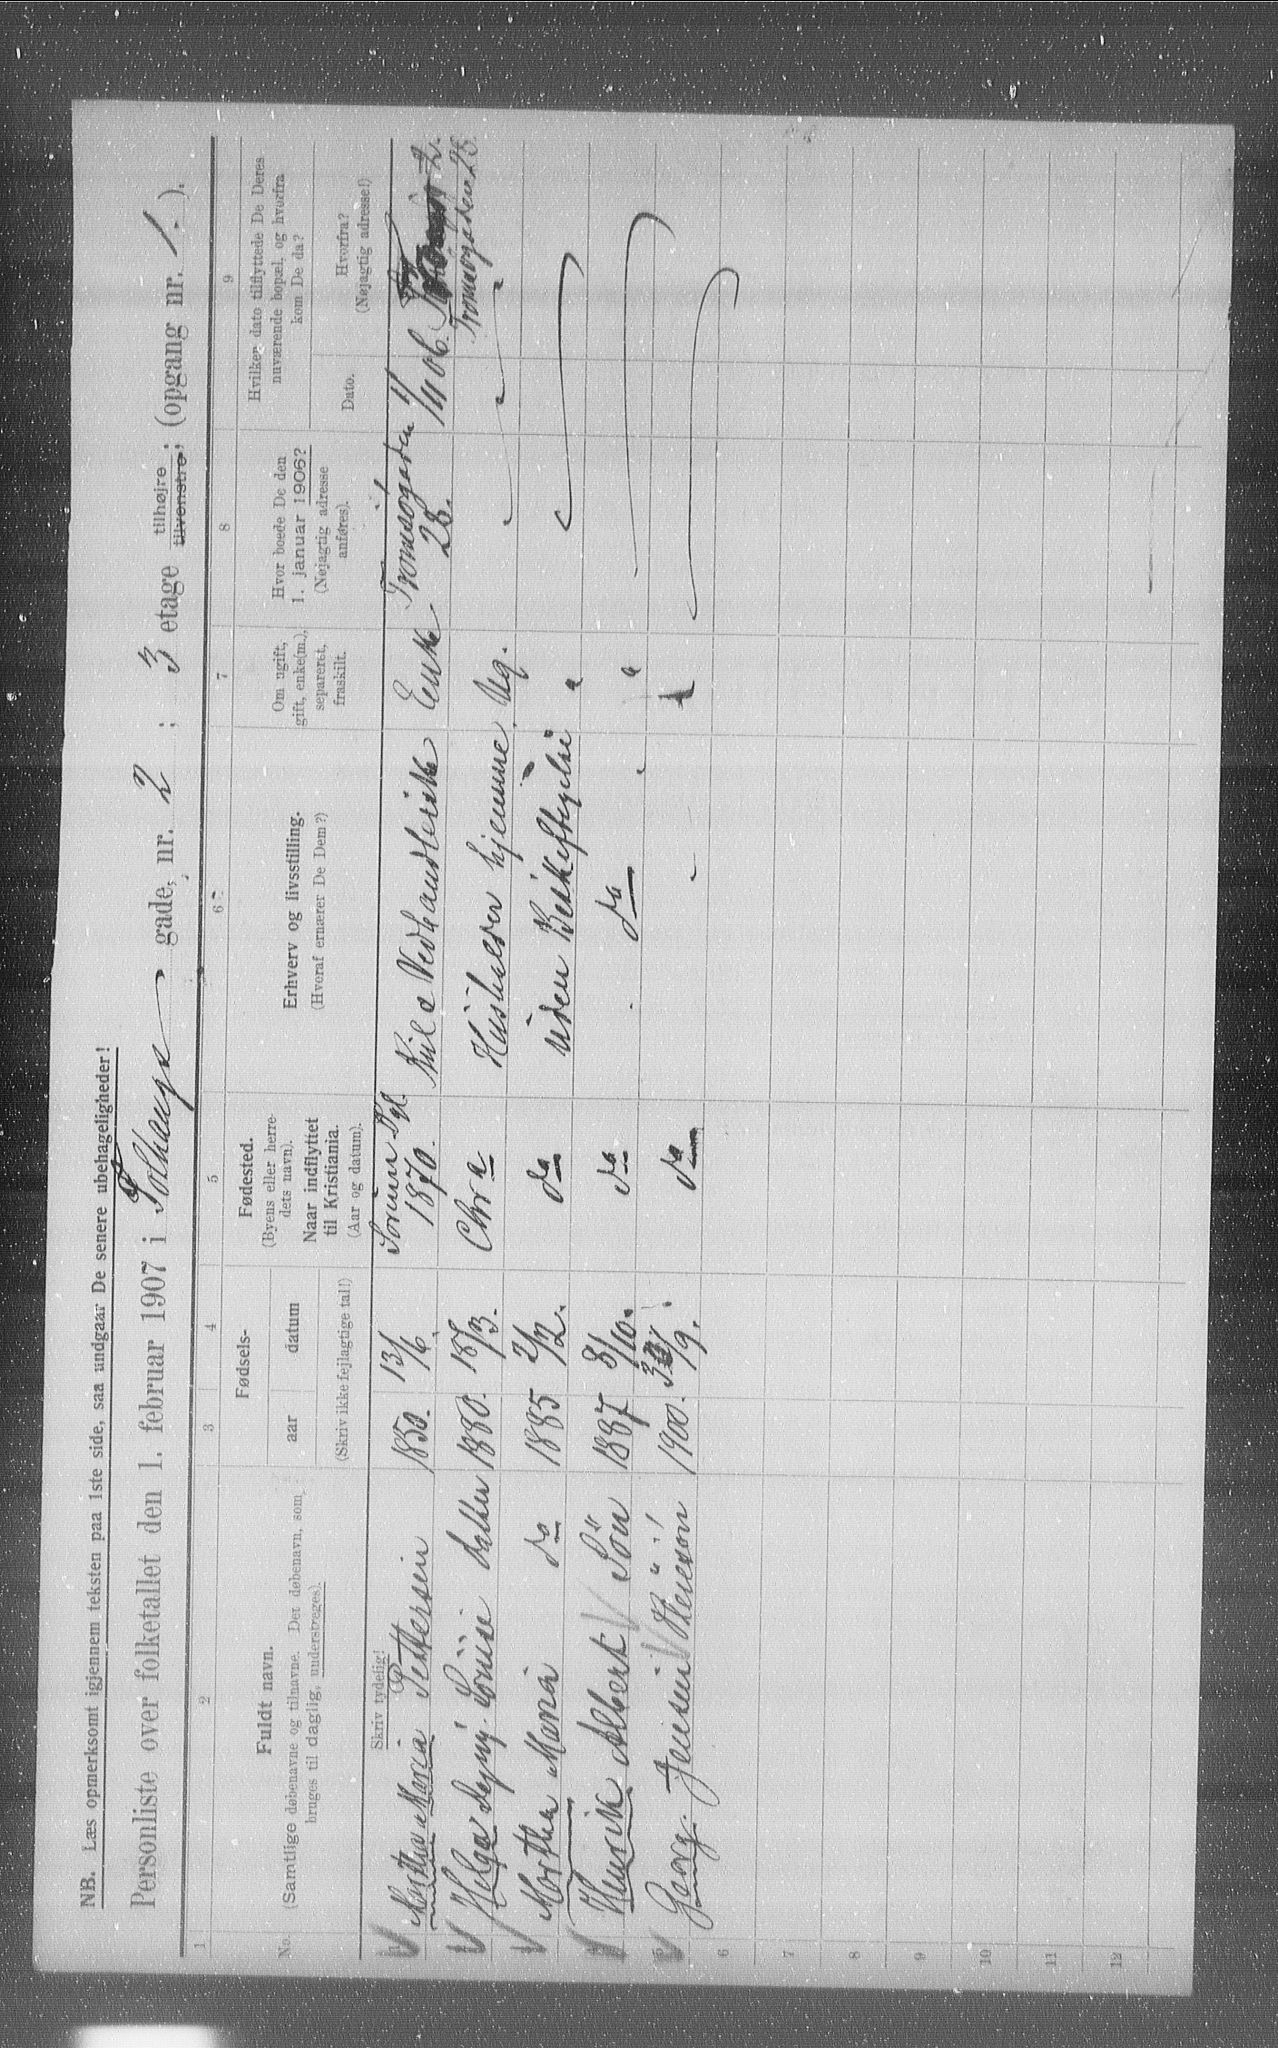 NB. Læs opmerksomt igjennem teksten paa 1ste side, saa undgaar De senere ubehageligheder!
Personliste over folketallet den 1. februar 1907 i Tofthesga gade, nr. 2 ; 3 etage tilhøjre tilvenstre; (opgang nr. 1. ).
1 2 3 4 5 6 7 8 9
No. Fuldt navn. (Samtlige døbenavne og tilnavne. Det døbenavn, som bruges til daglig, understreges).
Fødsels- aar datum (Skriv ikke fejlagtige tal!)
Fødested. (Byens eller herredets navn). Naar indflyttet til Kristiania. (Aar og datum).
Erhverv og livsstilling. (Hvoraf ernærer De Dem?)
Om ugift, gift, enke(m.), separeret, fraskilt.
Hvor boede De den 1. januar 1906? (Nøjagtig adresse anføres).
Hvilken dato tilflyttede De Deres nuværende bopæl, og hvorfra kom De da?
Dato. Hvorfra? (Nøjagtig adresse!)
Skriv tydelig!
Marthe Maria Pettersen 1850. 13/6 Sørum Pgl. 1870. Kul & Vedhandlerske Enke Tromsøgaden 28. 1/11 06. Tromsøgaden 28.
Helga Dagny Louise datter 1880. 18/3. Chra Husholder hjemme Ug.
Martha Maria do 1885 2/2. da uden Beskjeftigelse "
Henrik Albert Søn 1887 8/10. da da "
Georg Jensen Pleiesøn 1900. /9. da
6
7
8
9
10
11
12